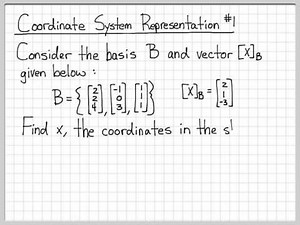 Coordinate System Representation #1
Consider the basis B and vector [x]_B
given below :
B = { [2 2 4], [-1 0 3], [1 1 1] }   [x]_B = [2 1 -3]
Find x, the coordinates in the s